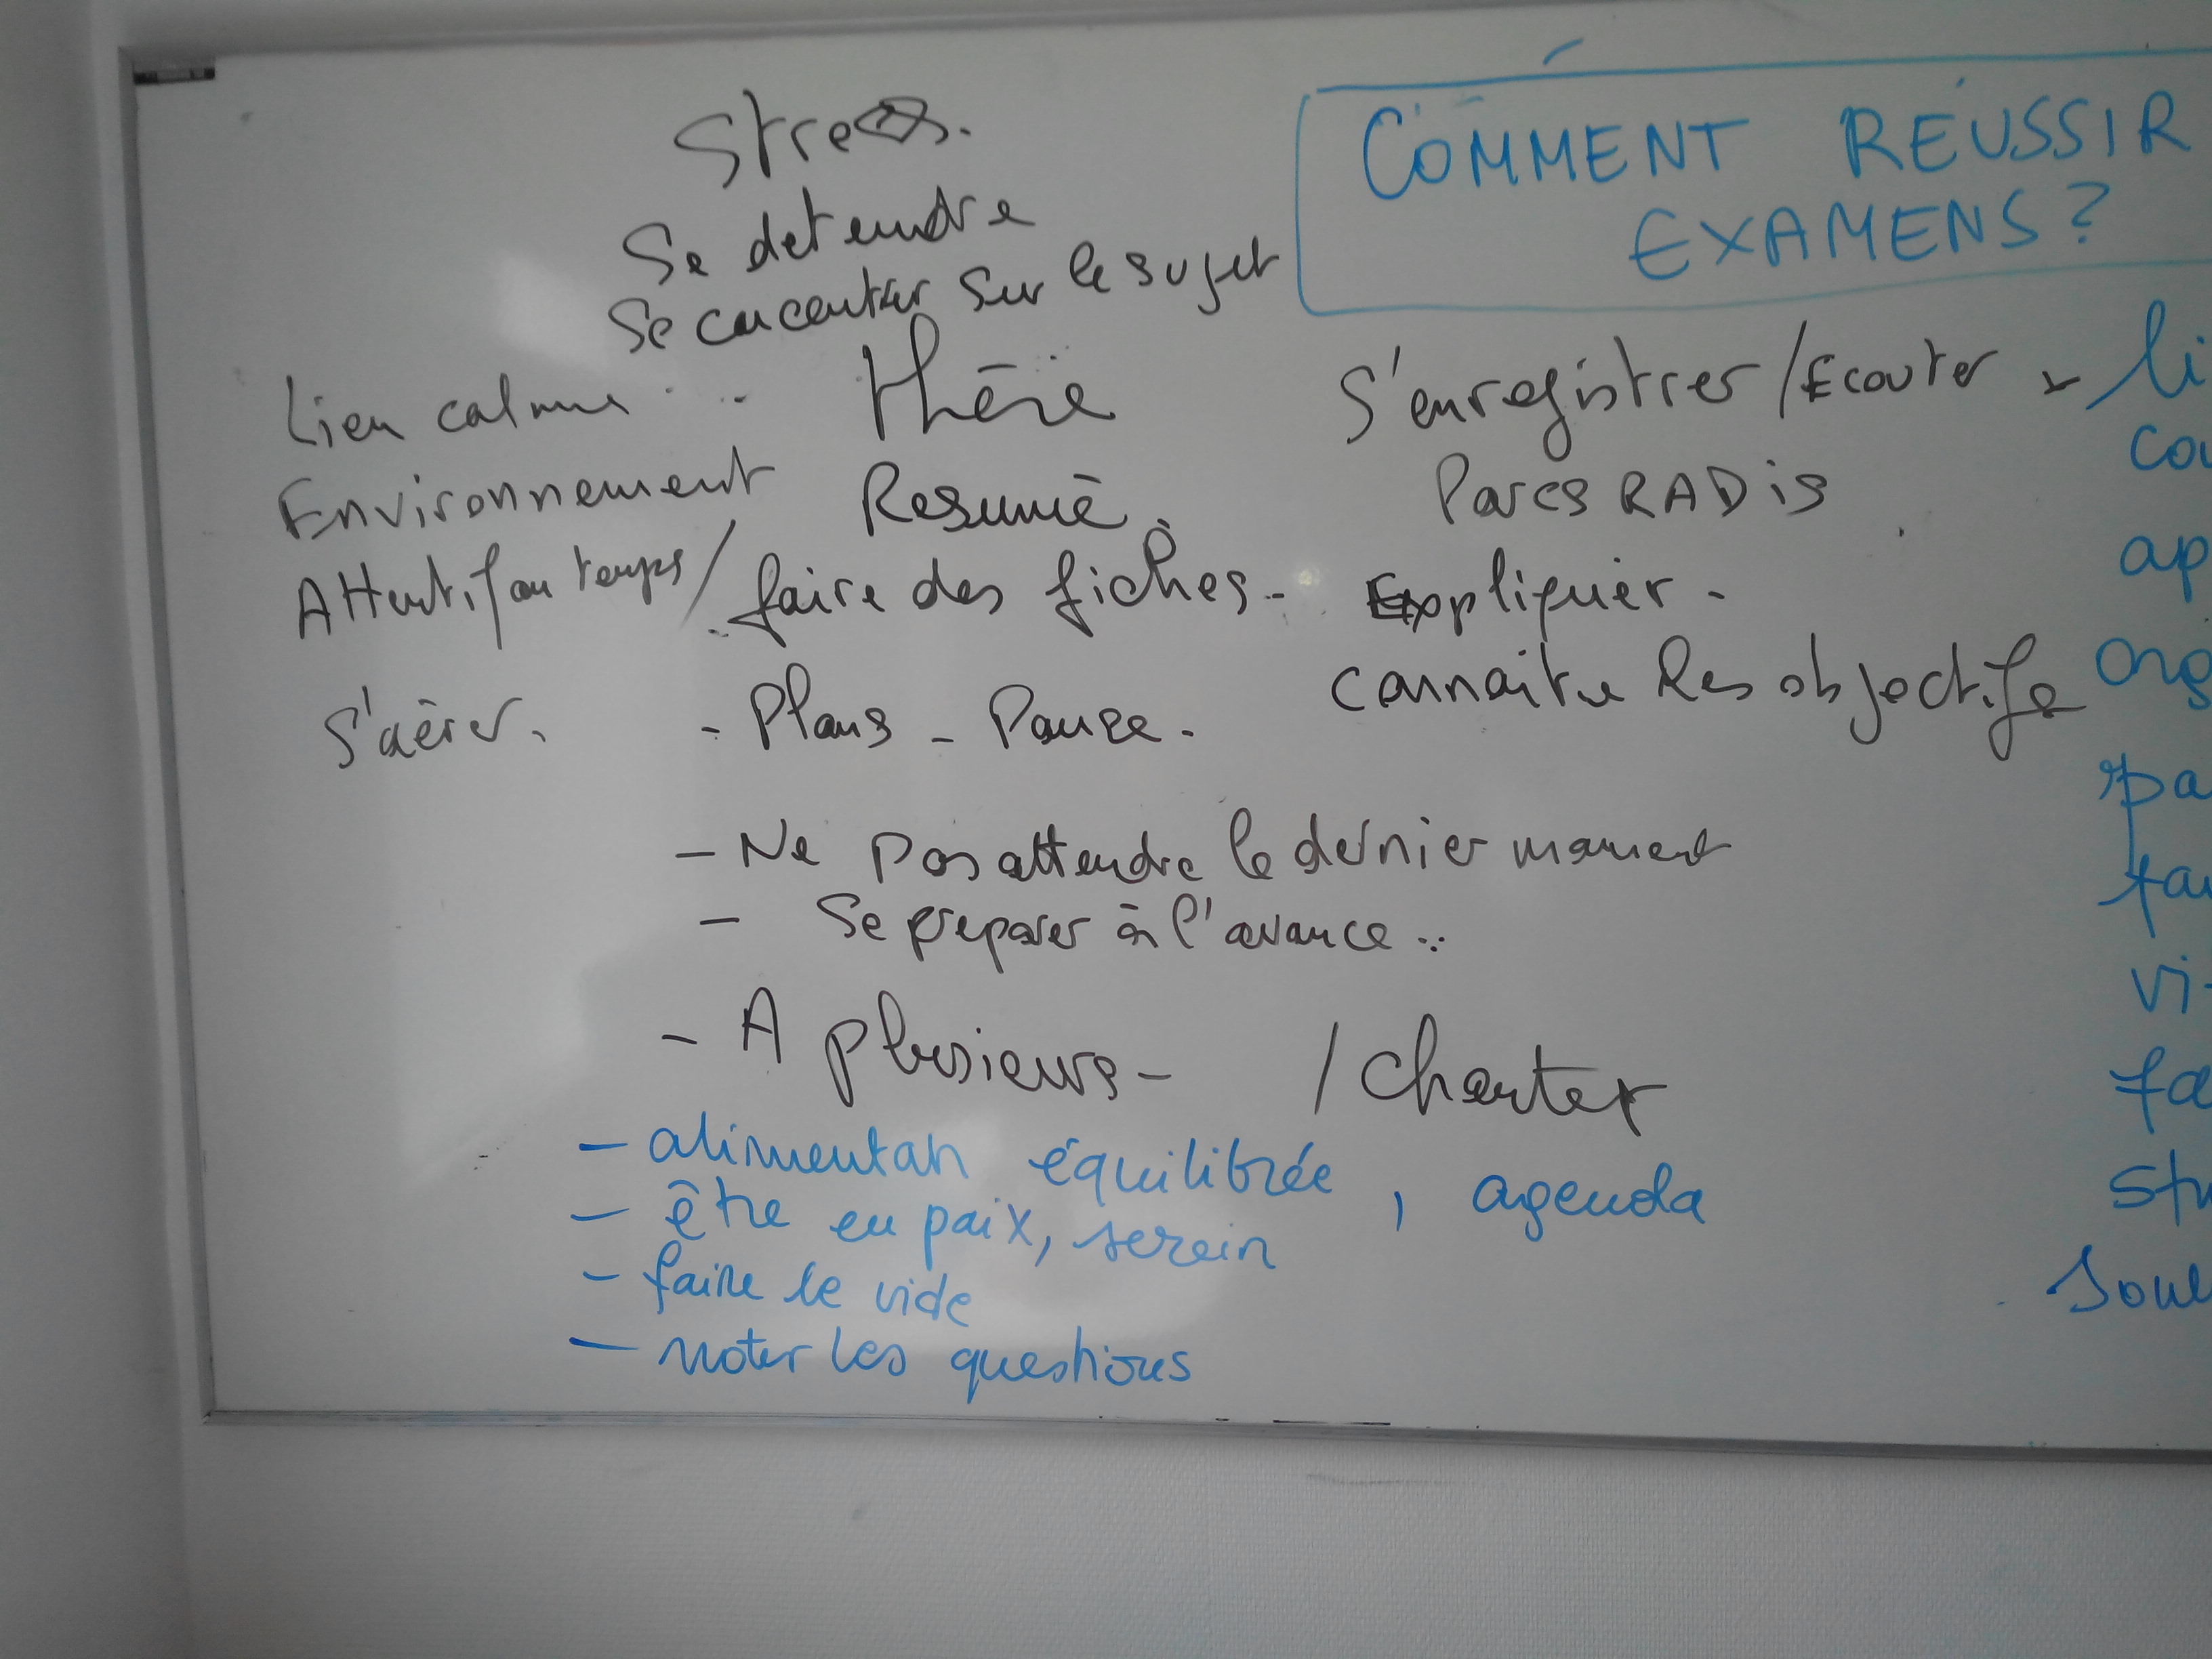 COMMENT RÉUSSIR
EXAMENS?
Stress.
Se detendre
Se concentrer sur le sujet
Lieu calme
Environnement
Attentif au temps /
S'aérer.
Resumé.
faire des fiches -
- Plans - Pause -
S'enregistrer / Ecouter
Expliquer -
connaitre les objectifs
- Ne pas attendre le dernier moment
- Se preparer à l'avance ..
- A plusieurs - / chanter
- alimentah équilibrée, agenda
- être en paix, serein
- faire le vide
- noter les questions